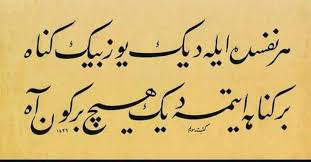 هر نفسده ایله دیک یوز بیک کناه
بر کناهه ایتمه دیک هیچ بر کون آه